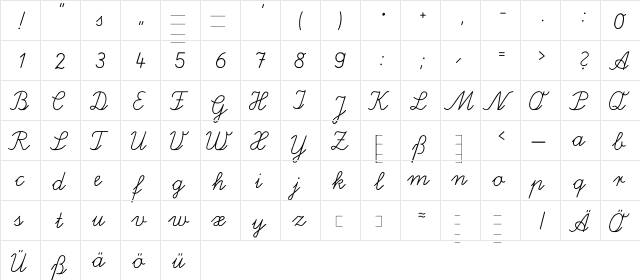 ! " s „ ' ( ) • + , – . : 0
1 2 3 4 5 6 7 8 9 : ; ⸝ = > ? A
B C D E F G H I J K L M N O P Q
R S T U V W X Y Z [ ß ] < — a b
c d e f g h i j k l m n o p q r
s t u v w x y z [ ] ≈ / Ä Ö
Ü ß ä ö ü